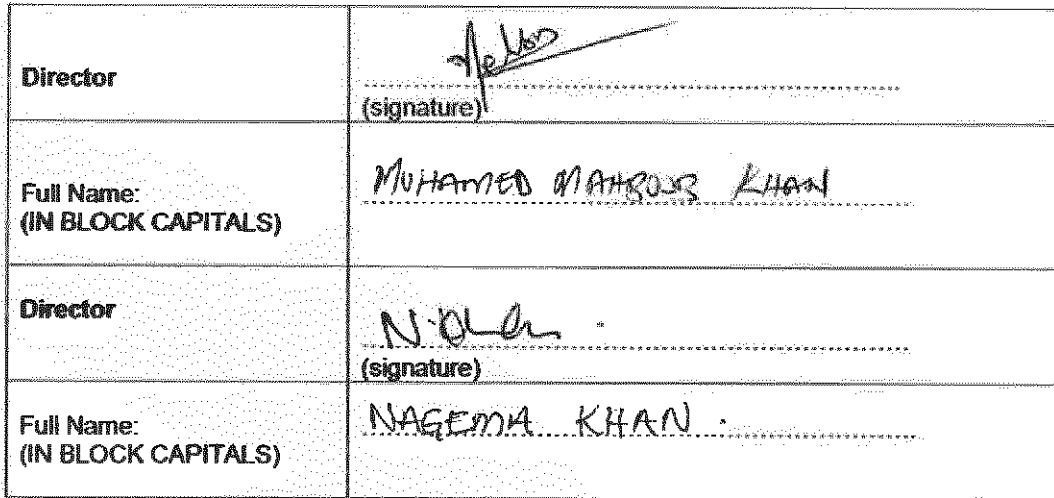 Director
(signature)
Full Name:
(IN BLOCK CAPITALS)
MUHAMED MAHBOUB KHAN
Director
N. Khan
(signature)
Full Name:
(IN BLOCK CAPITALS)
NAGEMA KHAN.